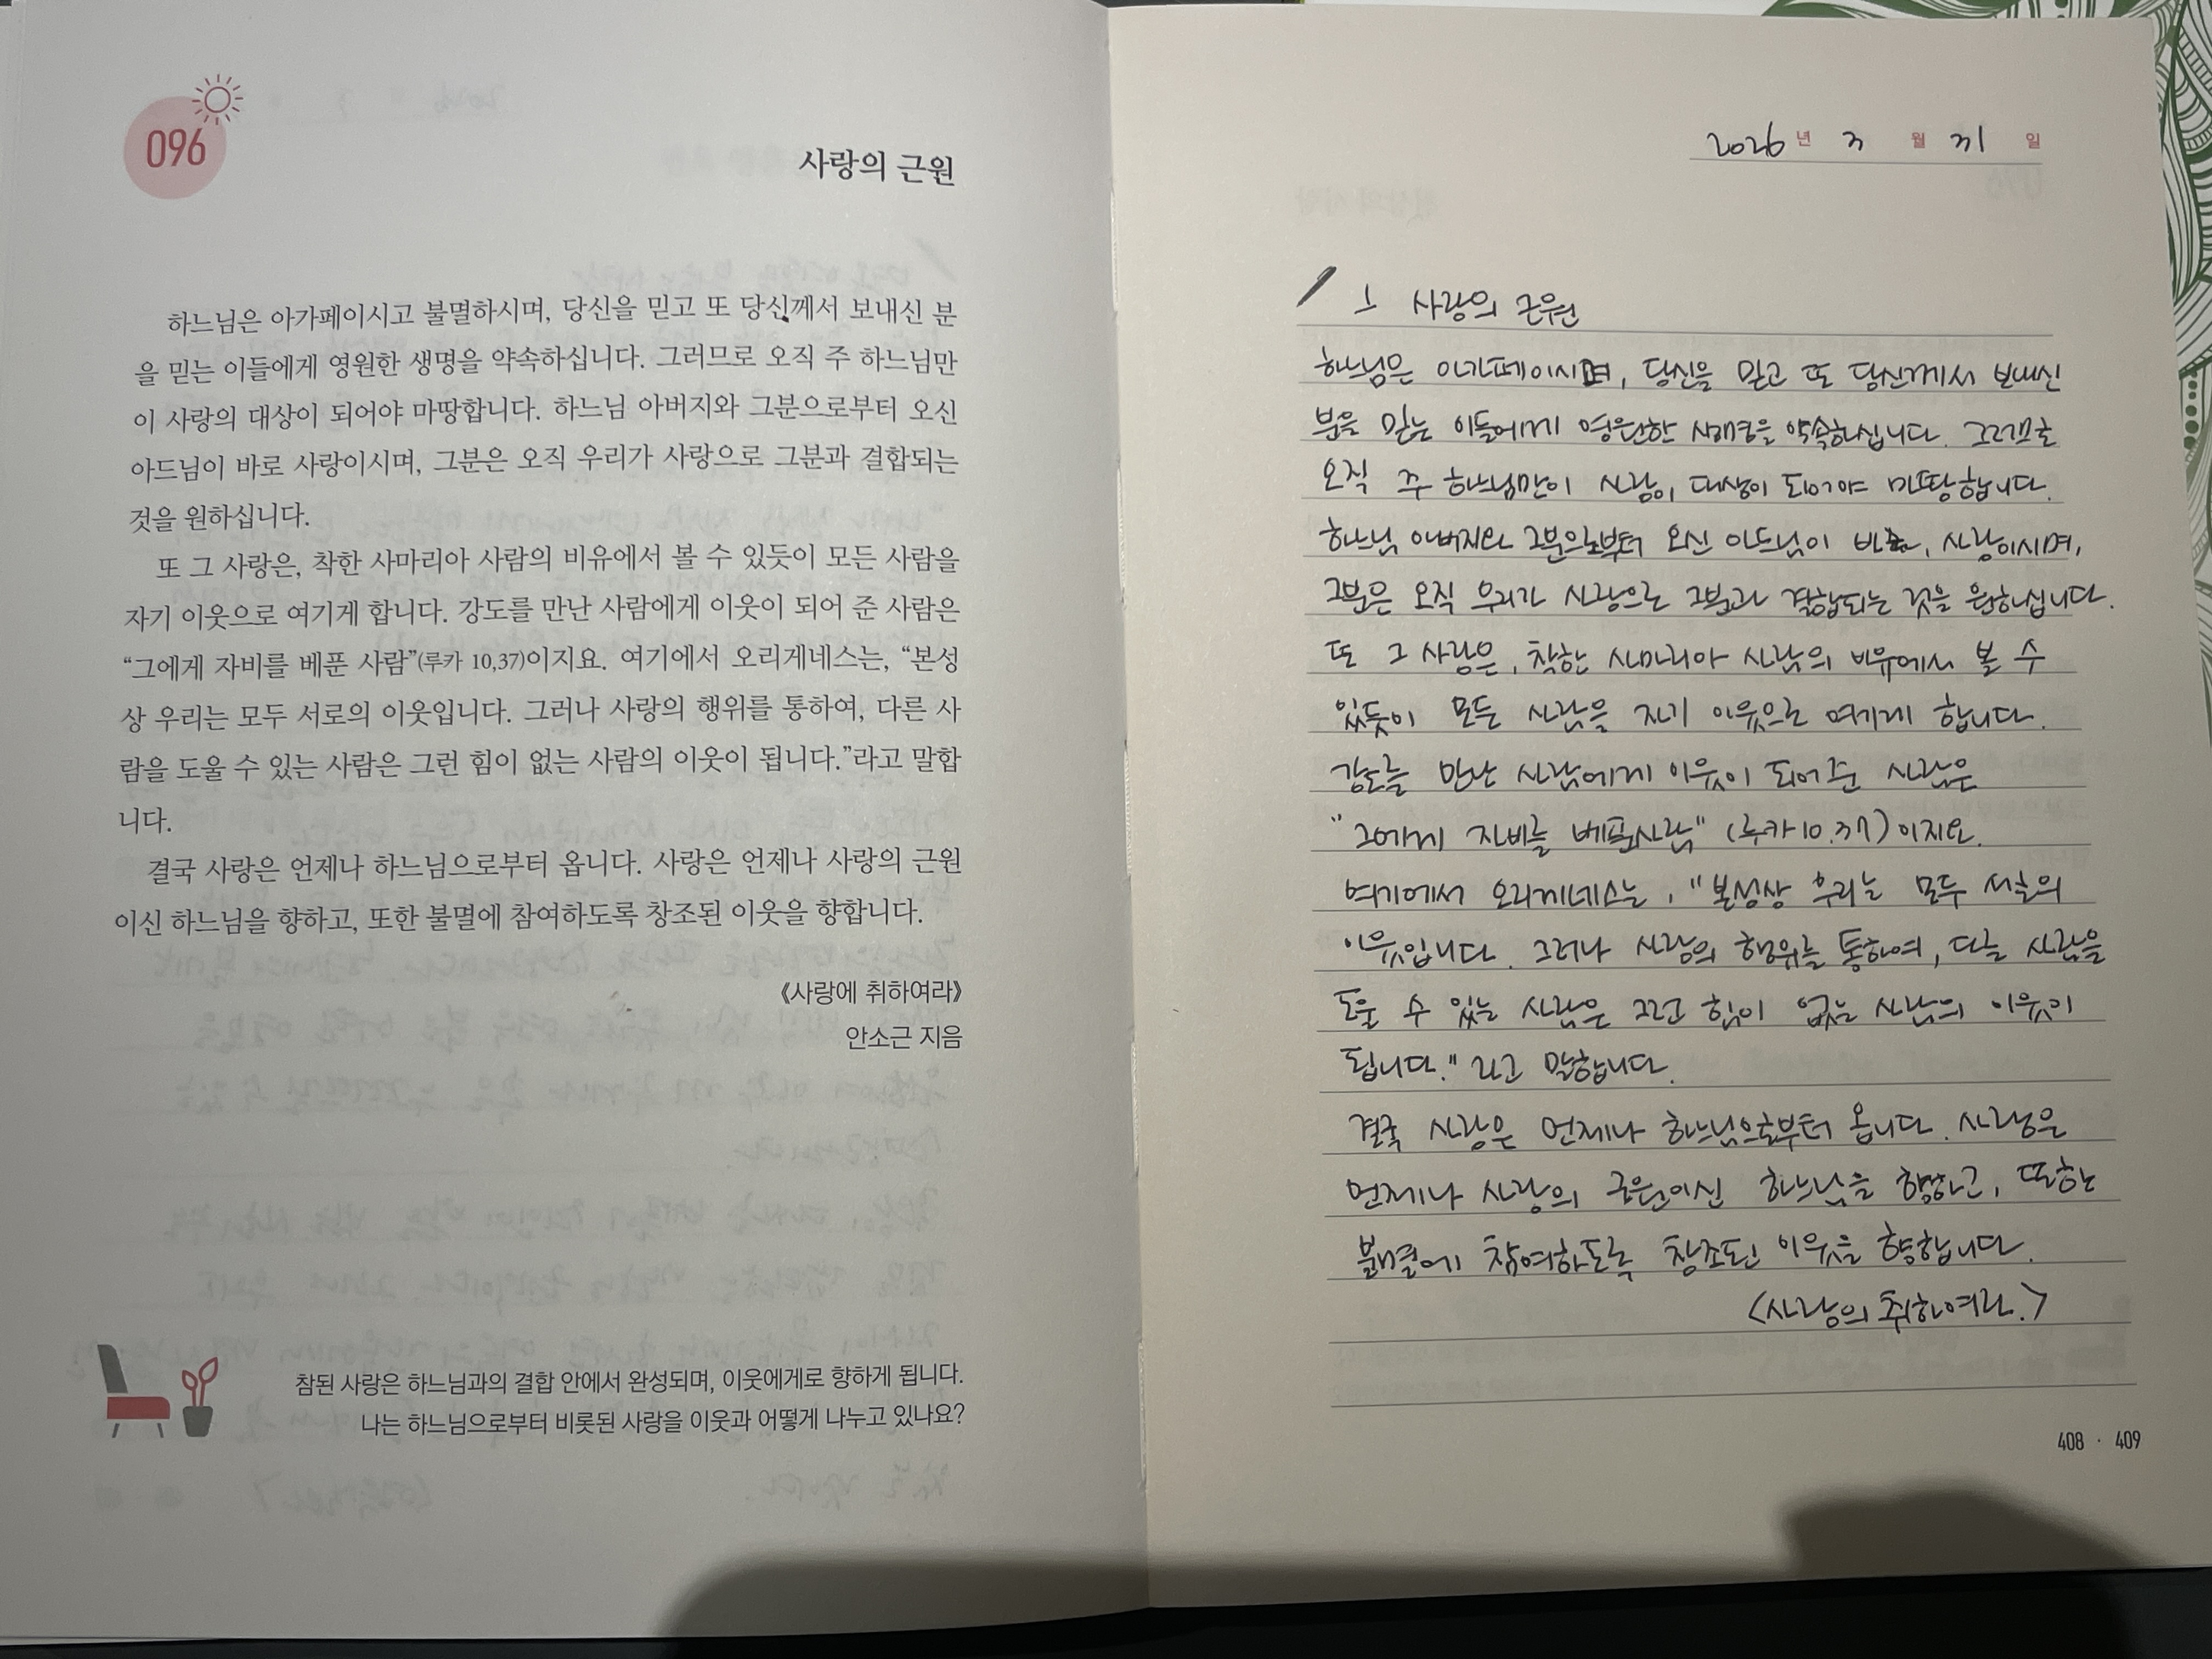 096
사랑의 근원
하느님은 아가페이시고 불멸하시며, 당신을 믿고 또 당신께서 보내신 분
을 믿는 이들에게 영원한 생명을 약속하십니다. 그러므로 오직 주 하느님만
이 사랑의 대상이 되어야 마땅합니다. 하느님 아버지와 그분으로부터 오신
아드님이 바로 사랑이시며, 그분은 오직 우리가 사랑으로 그분과 결합되는
것을 원하십니다.
또 그 사랑은, 착한 사마리아 사람의 비유에서 볼 수 있듯이 모든 사람을
자기 이웃으로 여기게 합니다. 강도를 만난 사람에게 이웃이 되어 준 사람은
“그에게 자비를 베푼 사람”(루카 10,37)이지요. 여기에서 오리게네스는, “본성
상 우리는 모두 서로의 이웃입니다. 그러나 사랑의 행위를 통하여, 다른 사
람을 도울 수 있는 사람은 그런 힘이 없는 사람의 이웃이 됩니다.”라고 말합
니다.
결국 사랑은 언제나 하느님으로부터 옵니다. 사랑은 언제나 사랑의 근원
이신 하느님을 향하고, 또한 불멸에 참여하도록 창조된 이웃을 향합니다.
《사랑에 취하여라》
안소근 지음
참된 사랑은 하느님과의 결합 안에서 완성되며, 이웃에게로 향하게 됩니다.
나는 하느님으로부터 비롯된 사랑을 이웃과 어떻게 나누고 있나요?
2026 년 3 월 31 일
사랑의 근원
하느님은 아가페이시며, 당신을 믿고 또 당신께서 보내신
분을 믿는 이들에게 영원한 생명을 약속하십니다. 그러므로
오직 주 하느님만이 사랑의 대상이 되어야 마땅합니다.
하느님 아버지와 그분으로부터 오신 아드님이 바로, 사랑이시며,
그분은 오직 우리가 사랑으로 그분과 결합되는 것을 원하십니다.
또 그 사랑은, 착한 사마리아 사람의 비유에서 볼 수
있듯이 모든 사람을 자기 이웃으로 여기게 합니다.
강도를 만난 사람에게 이웃이 되어 준 사람은
"그에게 자비를 베푼사람" (루카 10.37) 이지요.
여기에서 오리게네스는, "본성상 우리는 모두 서로의
이웃입니다. 그러나 사랑의 행위를 통하여, 다른 사람을
도울 수 있는 사람은 그런 힘이 없는 사람의 이웃이
됩니다." 라고 말합니다.
결국 사랑은 언제나 하느님으로부터 옵니다. 사랑은
언제나 사랑의 근원이신 하느님을 향하고, 또한
불멸에 참여하도록 창조된 이웃을 향합니다.
<사랑의 취하여라.>
408 · 409